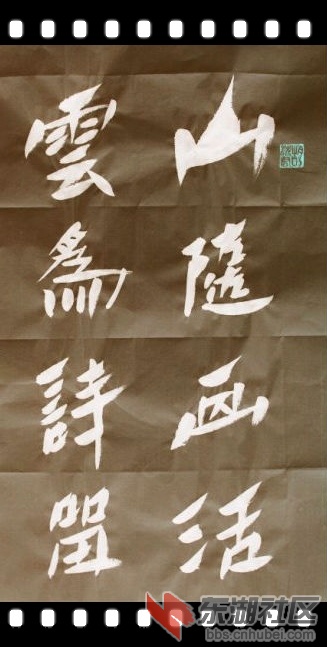 山随画活
雲為詩留
东湖社区
bbs.cnhubei.com